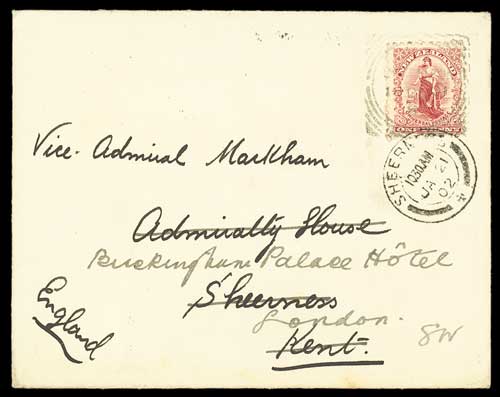 NEW ZEALAND
SHEERNESS
10.30AM
JA 21
02
Vice. Admiral Markham
Admiralty House
Buckingham Palace Hôtel
Sheerness
London.
Kent.
England
SW